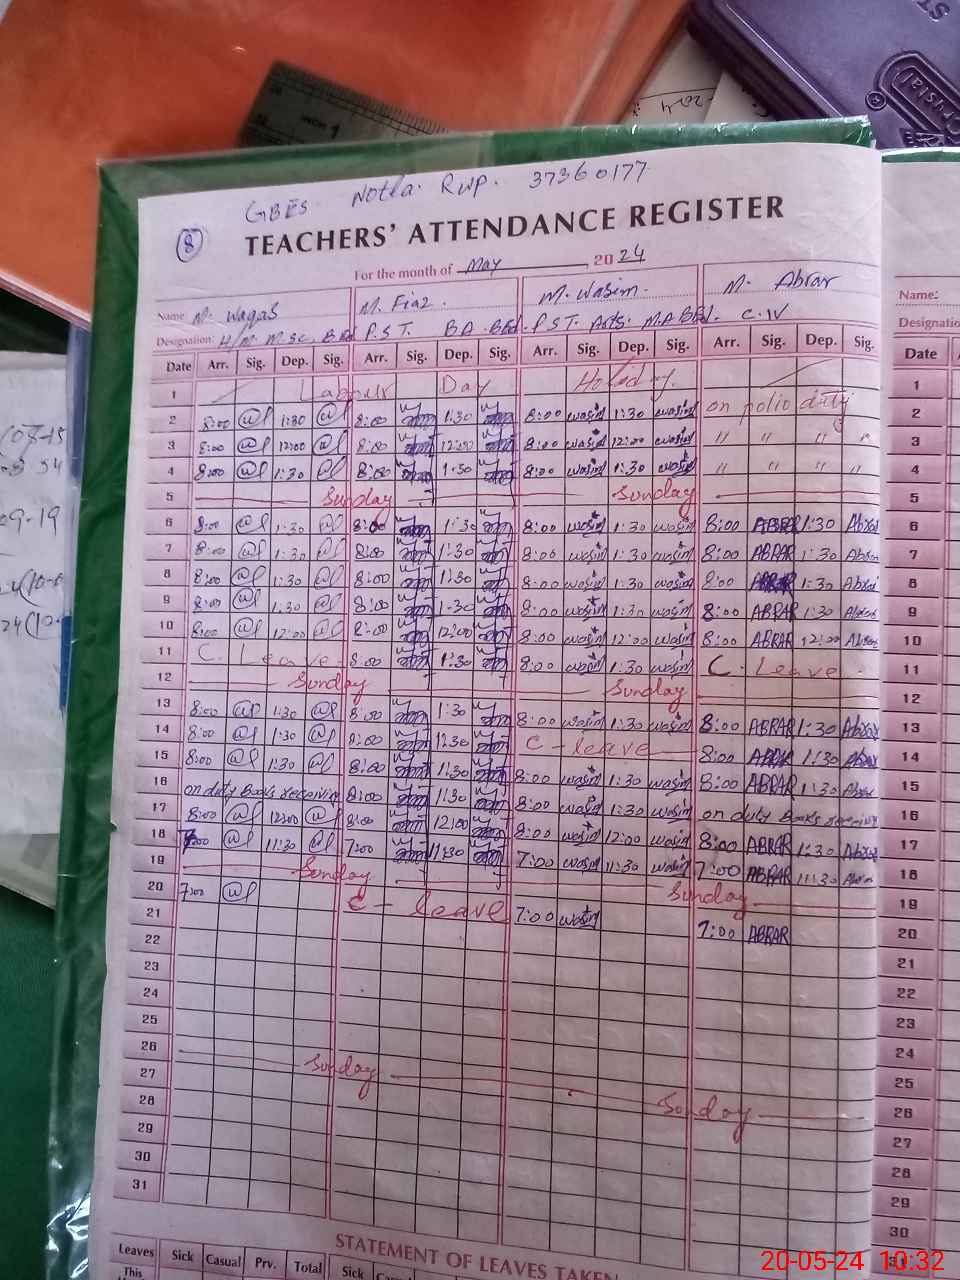 INCH 1
204
Crystal
GBES Notla. RWP. 37360177
8
TEACHERS' ATTENDANCE REGISTER
For the month of May 2024
Name M. Waqas M. Fiaz. M. Wasim. M. Abrar
Name:
Designation: H/M M.Sc. B.Ed P.S.T. B.A. B.Ed. P.S.T. Arts. M.A B.Ed. C-IV
Designation
Date Arr. Sig. Dep. Sig. Arr. Sig. Dep. Sig. Arr. Sig. Dep. Sig. Arr. Sig. Dep. Sig. Date
1 Labour Day Holeday. 1
2 8:00 1:30 8:00 1:30 8:00 wasim 1:30 wasim on polio duty 2
3 8:00 12:00 8:00 12:00 8:00 wasim 12:00 wasim " " " " 3
4 8:00 1:30 8:00 1:30 8:00 wasim 1:30 wasim " " " " 4
5 Sunday Sunday 5
6 8:00 1:30 8:00 1:30 8:00 wasim 1:30 wasim 8:00 ABRAR 1:30 Abrar 6
7 8:00 1:30 8:00 1:30 8:00 wasim 1:30 wasim 8:00 ABRAR 1:30 Abrar 7
8 8:00 1:30 8:00 1:30 8:00 wasim 1:30 wasim 8:00 ABRAR 1:30 Abrar 8
9 8:00 1:30 8:00 1:30 8:00 wasim 1:30 wasim 8:00 ABRAR 1:30 Abrar 9
10 8:00 12:00 8:00 12:00 8:00 wasim 12:00 wasim 8:00 ABRAR 12:00 Abrar 10
11 C. Leave 8:00 1:30 8:00 wasim 1:30 wasim C. Leave 11
12 Sunday Sunday 12
13 8:00 1:30 8:00 1:30 8:00 wasim 1:30 wasim 8:00 ABRAR 1:30 Abrar 13
14 8:00 1:30 8:00 1:30 C-leave 8:00 ABRAR 1:30 Abrar 14
15 8:00 1:30 8:00 1:30 8:00 wasim 1:30 wasim 8:00 ABRAR 1:30 Abrar 15
16 on duty Books receiving 8:00 1:30 8:00 wasim 1:30 wasim on duty Books receiving 16
17 8:00 12:00 8:00 12:00 8:00 wasim 12:00 wasim 8:00 ABRAR 1:30 Abrar 17
18 7:00 11:30 7:00 11:30 7:00 wasim 11:30 wasim 7:00 ABRAR 11:30 Abrar 18
19 Sunday Sunday 19
20 7:00 C-leave 7:00 wasim 7:00 ABRAR 20
21 21
22 22
23 23
24 24
25 25
26 Sunday Sunday 26
27 27
28 28
29 29
30 30
31
STATEMENT OF LEAVES TAKEN
Leaves Sick Casual Prv. Total Sick
This
20-05-24 10:32